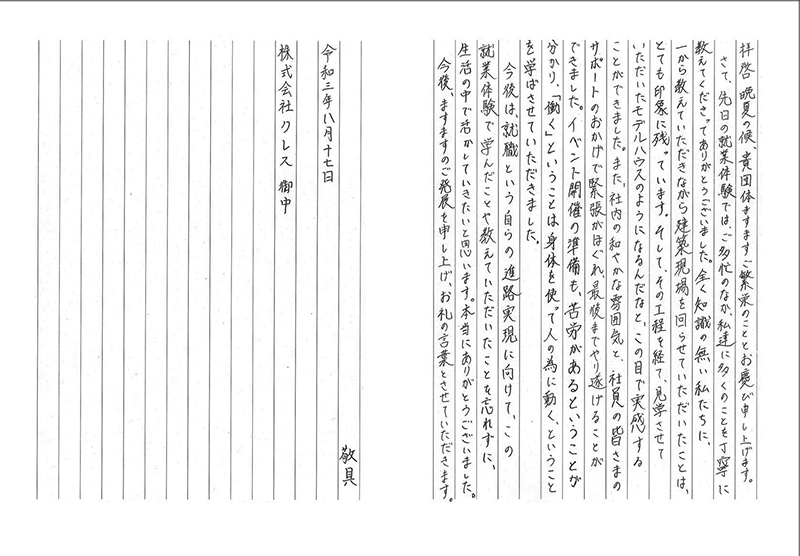 拝啓 晩夏の候、貴団体ますますご繁栄のこととお慶び申し上げます。
さて、先日の就業体験では、ご多忙のなか、私達に多くのことを丁寧に
教えてくださってありがとうございました。全く知識の無い私たちに、
一から教えていただきながら建築現場を回らせていただいたことは、
とても印象に残っています。そして、その工程を経て、見学させて
いただいたモデルハウスのようになるんだなと、この目で実感する
ことができました。また、社内の和やかな雰囲気と、社員の皆さまの
サポートのおかげで緊張がほぐれ、最後までやり遂げることが
できました。イベント開催の準備も、苦労があるということが
分かり、「働く」ということは身体を使って人の為に動く、ということ
を学ばさせていただきました。
今後は、就職という自らの進路実現に向けて、この
就業体験で学んだことや教えていただいたことを忘れずに、
生活の中で活かしていきたいと思います。本当にありがとうございました。
今後、ますますのご発展を申し上げ、お礼の言葉とさせていただきます。
敬具
令和三年八月十七日
株式会社クレス 御中